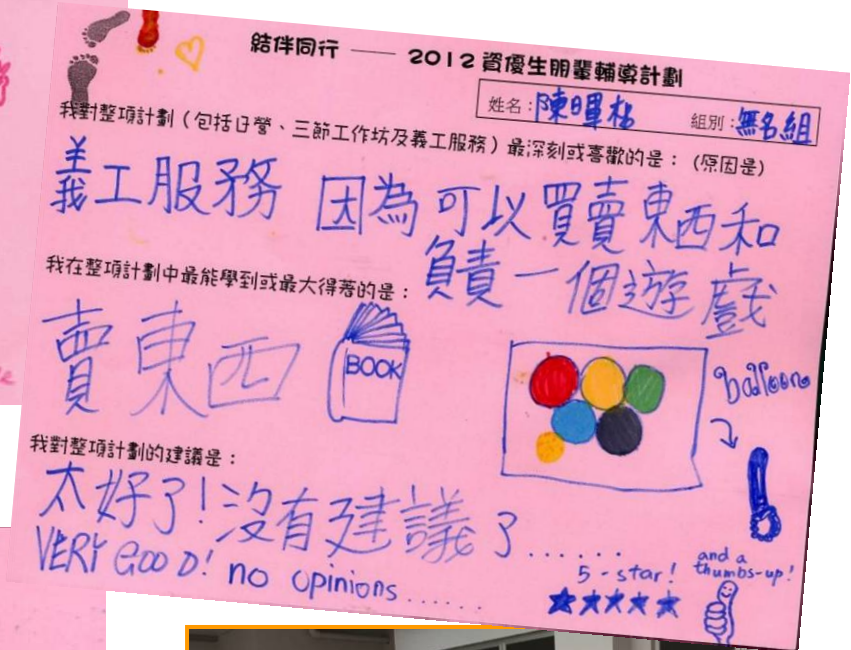 結伴同行 —— 2012 資優生朋輩輔導計劃
姓名：陳暐
組別：無名組
我對整項計劃（包括日營、三節工作坊及義工服務）最深刻或喜歡的是：（原因是）
義工服務 因為可以買賣東西和
負責一個遊戲
我在整項計劃中最能學到或最大得著的是：
賣東西
BOOK
balloon
我對整項計劃的建議是：
太好了！沒有建議了......
VERY GOOD! no opinions......
5-star!
and a
thumbs-up!